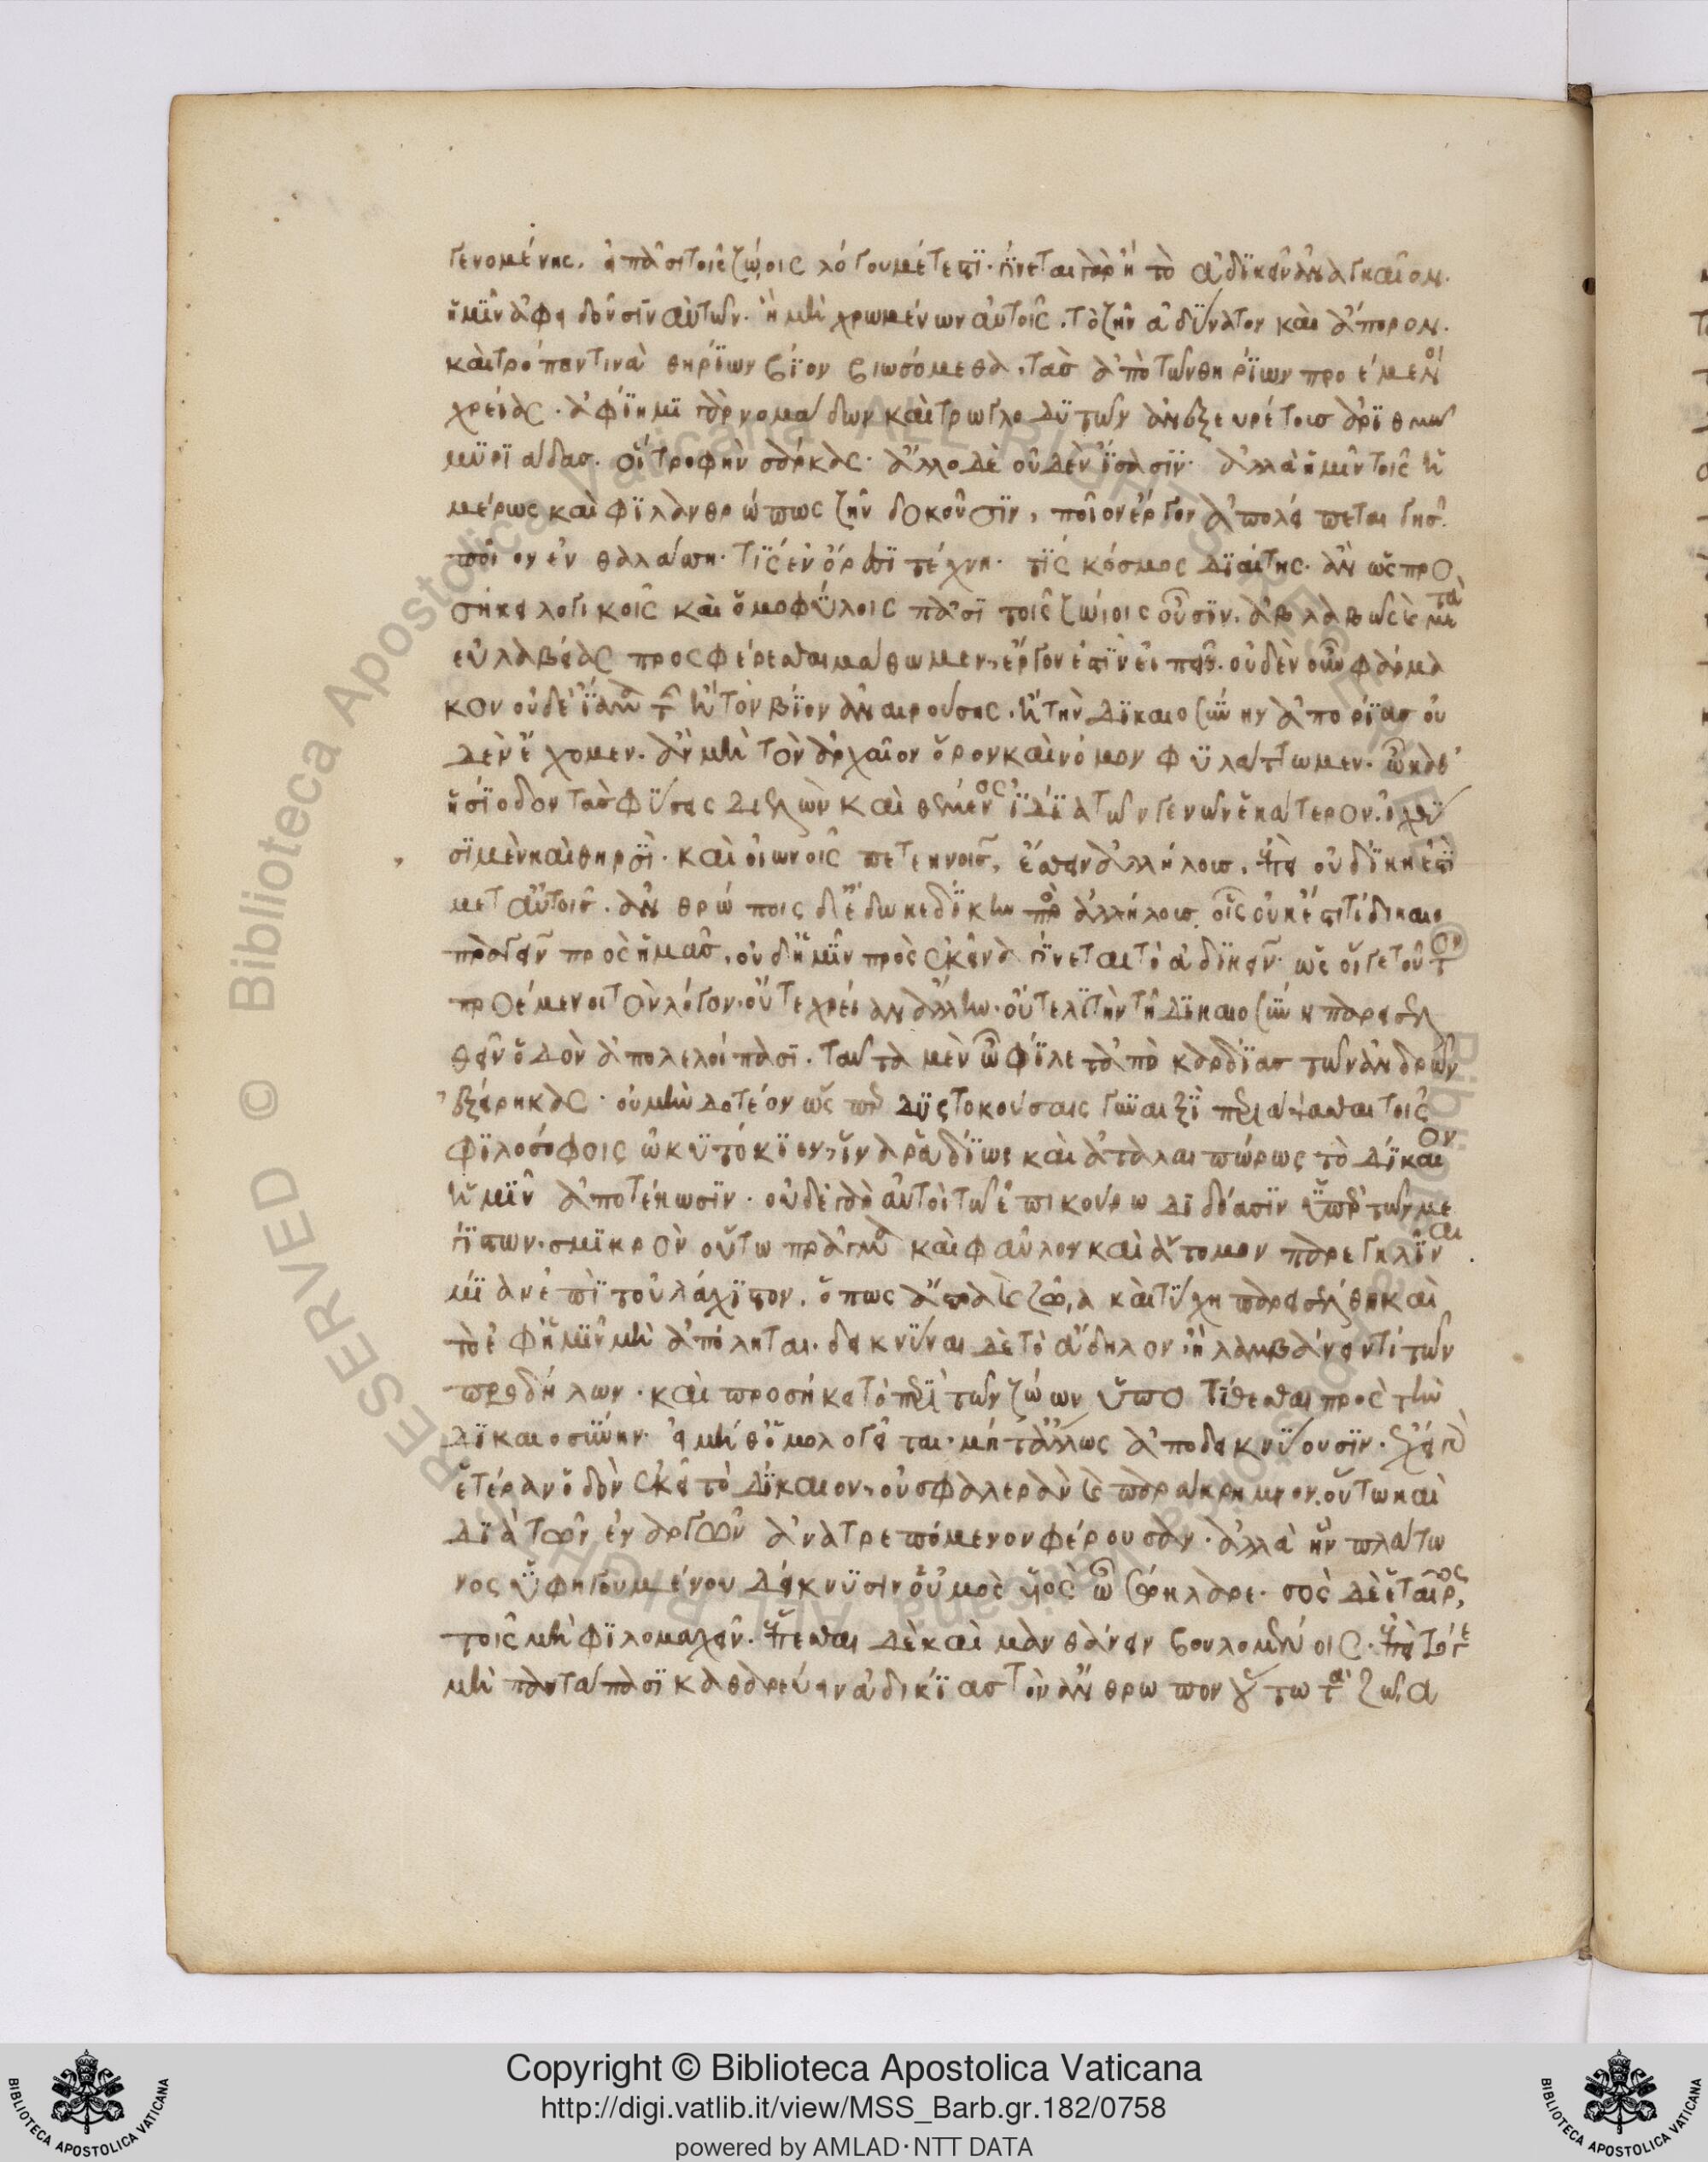 γενομένης. εἰ πᾶσι τοῖς ζώοις λόγου μέτεστϊ· γίνεται γὰρ ἢ τὸ ἀδϊκεῖν ἀναγκαῖον.
ἡμῖν ἀφειδοῦσϊν αὐτῶν. ἢ μὴ χρωμένων αὐτοῖς. τὸ ζῆν ἀδύνατον καὶ ἄπορον.
καὶ τρόπον τινὰ θηρίων βίον βιωσόμεθα. τὰς ἀπὸ τῶν θηρίων προέμενοι
χρείας. ἀφίημϊ γὰρ νομάδων καὶ τρωγλοδϋτῶν ἀνεξευρέτοισ ἀρϊθμῶ
μϋρϊάδασ. οἳ τροφὴν σάρκας· ἄλλο δὲ οὐδὲν ἴσασϊν· ἀλλὰ ἡμῖν τοῖς ἡ
μέρως καὶ φϊλανθρώπως ζῆν δοκοῦσϊν, ποῖον ἔργον ἀπολείπεται γῆσ.
ποῖον ἐν θαλάττη. τίς ἐν ὄρεσϊ τέχνη. τίς κόσμος διαίτης. ἂν ὡς προ
σήκει λογικοῖς καὶ ὁμοφύλοις πᾶσϊ τοῖς ζώιοις οὖσϊν. ἀβλαβῶς καὶ μετὰ
εὐλαβείας προσφέρεσθαι μάθωμεν, ἔργον ἐστὶν εἰπεῖν. οὐδὲν οὖν φάρμα
κον οὐδὲ ἴαμα τῆς ἢ τὸν βίον ἀναιρούσης. ἢ τὴν δϊκαιοσύνην ἀπορίασ οὐ
δὲν ἔχομεν. ἂν μὴ τὸν ἀρχαῖον ὅρον καὶ νόμον φϋλάττωμεν. ὧ καθ'
ἡσίοδον τὰσ φύσεις διελὼν καὶ θέμενος ἰδίᾳ τῶν γενῶν ἑκάτερον. ἰχθύ
σϊ μὲν καὶ θηρσϊ· καὶ οἰωνοῖς πετεηνοῖσ, ἔσθειν ἀλλήλοισ. ἐπεὶ οὐ δίκη ἐστὶ
μετ αὐτοῖσ. ἀνθρώποις δὲ ἔδωκε δίκην πρὸς ἀλλήλοισ. οἷς οὐκ ἔστι τι δίκαιον
πράττειν πρὸς ἡμᾶσ, οὐδὲ ἡμῖν πρὸς ἐκεῖνα γίνεται τὸ ἀδϊκεῖν. ὡς οἵγε τοῦτον
προέμενοι τὸν λόγον. οὔτε χρείαν ἄλλην. οὔτε λϊτὴν τῆ δϊκαιοσύνη παρεισελ
θεῖν ὁδὸν ἀπολελοίπασϊ. ταῦτα μὲν ὦ φίλε τὰ ἀπὸ καρδίασ τῶν ἀνδρῶν
ἐξείρηκας. οὐ μὴν δοτέον ὡς περ δϋςτοκούσαις γυναιξϊ περιάψασθαι τοῖς
φϊλοσόφοις ὠκϋτόκϊον, ἵνα ῥαδίως καὶ ἀταλαιπώρως τὸ δίκαιον
ἡμῖν ἀποτέκωσϊν. οὐδὲ γὰρ αὐτοὶ τῶ ἐπικούρω διδόασϊν ὑπὲρ τῶν με
γίστων. σμϊκρὸν οὕτω πρᾶγμα καὶ φαῦλον καὶ ἄτομον παρεγκλῖναι
μίαν ἐπὶ τοὐλάχϊστον. ὅπως ἄστρα καὶ ζῶα καὶ τύχη παρεισέλθη καὶ
τὸ ἐφ ἡμῖν μὴ ἀπόληται. δεικνύναι δὲ τὸ ἄδηλον ἢ λαμβάνειν τι τῶν
προδήλων. καὶ προσήκει τὸ περὶ τῶν ζώων ὑποτίθεσθαι πρὸς τὴν
δϊκαιοσύνην. εἰ μήθ ὁμολογεῖται. μήτ ἄλλως ἀποδεικνύουσϊν. ἔχει γὰρ
ἑτέραν ὁδὸν ἐκεῖ τὸ δίκαιον, οὐ σφαλερὰν καὶ παράκρημνον. οὕτω καὶ
δϊὰ τῶν ἐναργῶν ἀνατρεπόμενον φέρουσαν. ἀλλὰ ἣν πλάτω
νος ὑφηγουμένου δείκνϋσιν οὑμὸς υἱὸς ὦ σώκλαρε. σὸς δὲ ἑταῖρος,
τοῖς μὴ φϊλομαχεῖν. ἕπεσθαι δὲ καὶ μανθάνειν βουλομένοις. ἐπεὶ τό γε
μὴ παντάπασϊ καθαρεύειν ἀδικίασ τὸν ἄνθρωπον οὕτω τὰ ζῶα
Copyright © Biblioteca Apostolica Vaticana
http://digi.vatlib.it/view/MSS_Barb.gr.182/0758
powered by AMLAD·NTT DATA